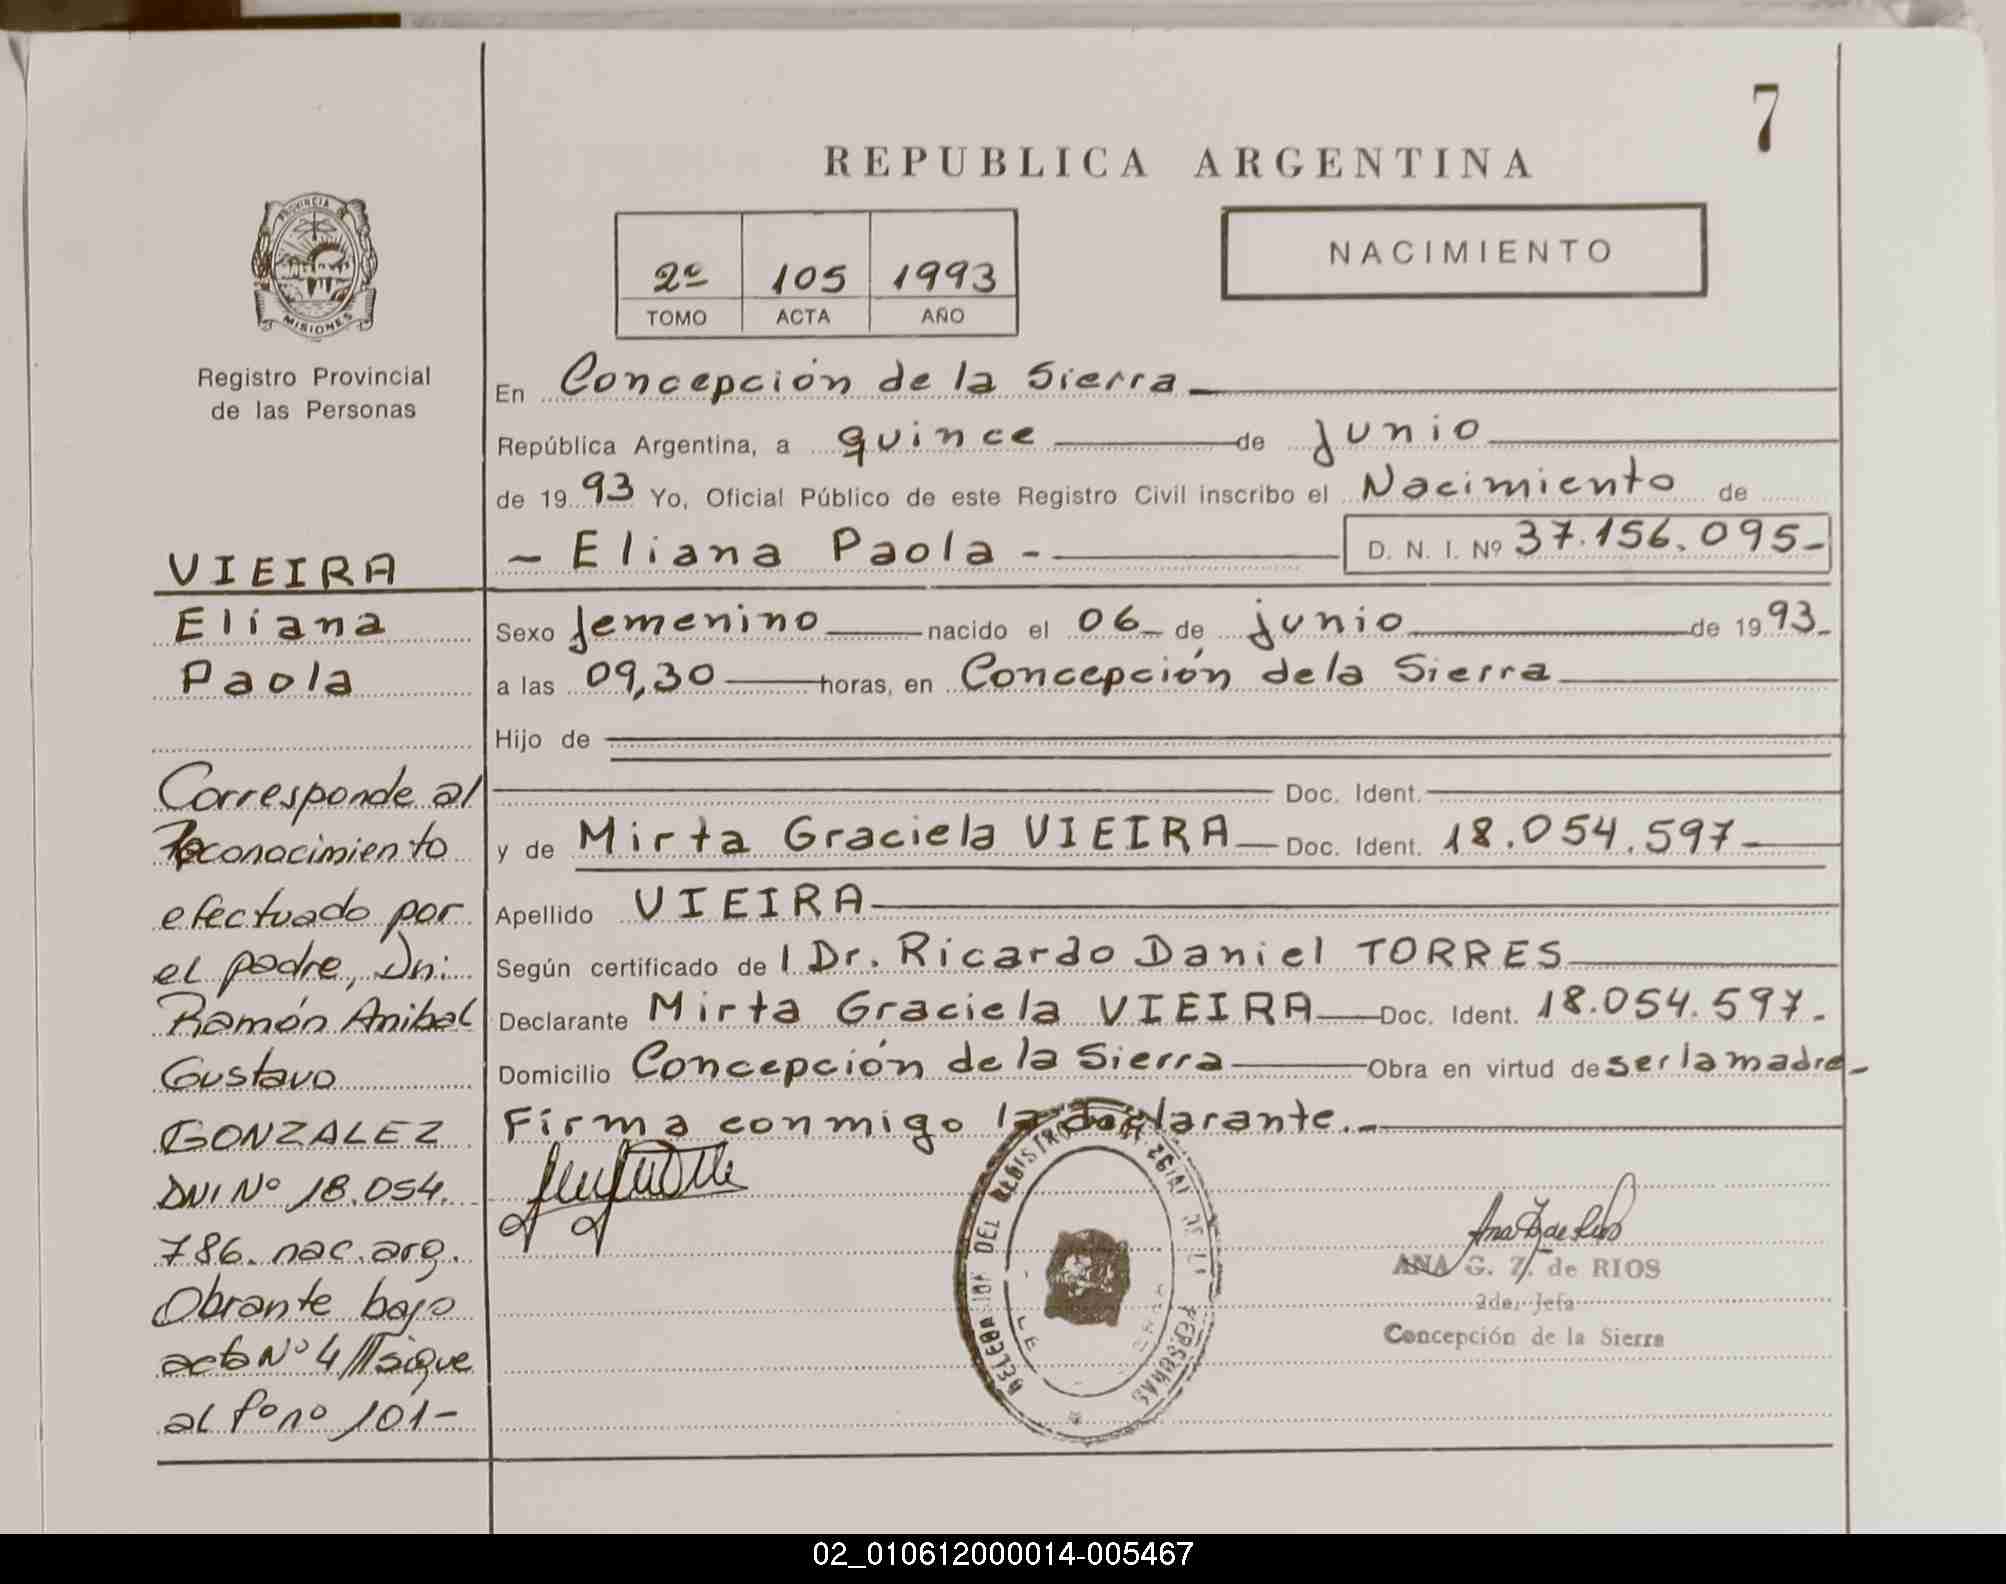 7
REPUBLICA ARGENTINA
PROVINCIA DE
MISIONES
Registro Provincial
de las Personas
2º 105 1993
TOMO ACTA AÑO
NACIMIENTO
En Concepción de la Sierra
República Argentina, a quince de junio
de 19 93 Yo, Oficial Público de este Registro Civil inscribo el Nacimiento de
- Eliana Paola - D. N. I. Nº 37.156.095-
Sexo femenino nacido el 06 de junio de 19 93
a las 09,30 horas, en Concepción de la Sierra
Hijo de
Doc. Ident.
y de Mirta Graciela VIEIRA Doc. Ident. 18.054.597
Apellido VIEIRA
Según certificado de l Dr. Ricardo Daniel TORRES
Declarante Mirta Graciela VIEIRA Doc. Ident. 18.054.597.
Domicilio Concepción de la Sierra Obra en virtud de ser la madre
Firma conmigo la declarante.
VIEIRA
Eliana
Paola
Corresponde al
Reconocimiento
efectuado por
el padre, Dn:
Ramón Anibal
Gustavo
GONZALEZ
DNI Nº 18.054.
786. nac. arg.
Obrante bajo
acta Nº 4 /// sigue
al Fº nº 101-
DELEGACION DEL REGISTRO DE LAS PERSONAS
ANA G. Z. de RIOS
2da. Jefa
Concepción de la Sierra
02_010612000014-005467